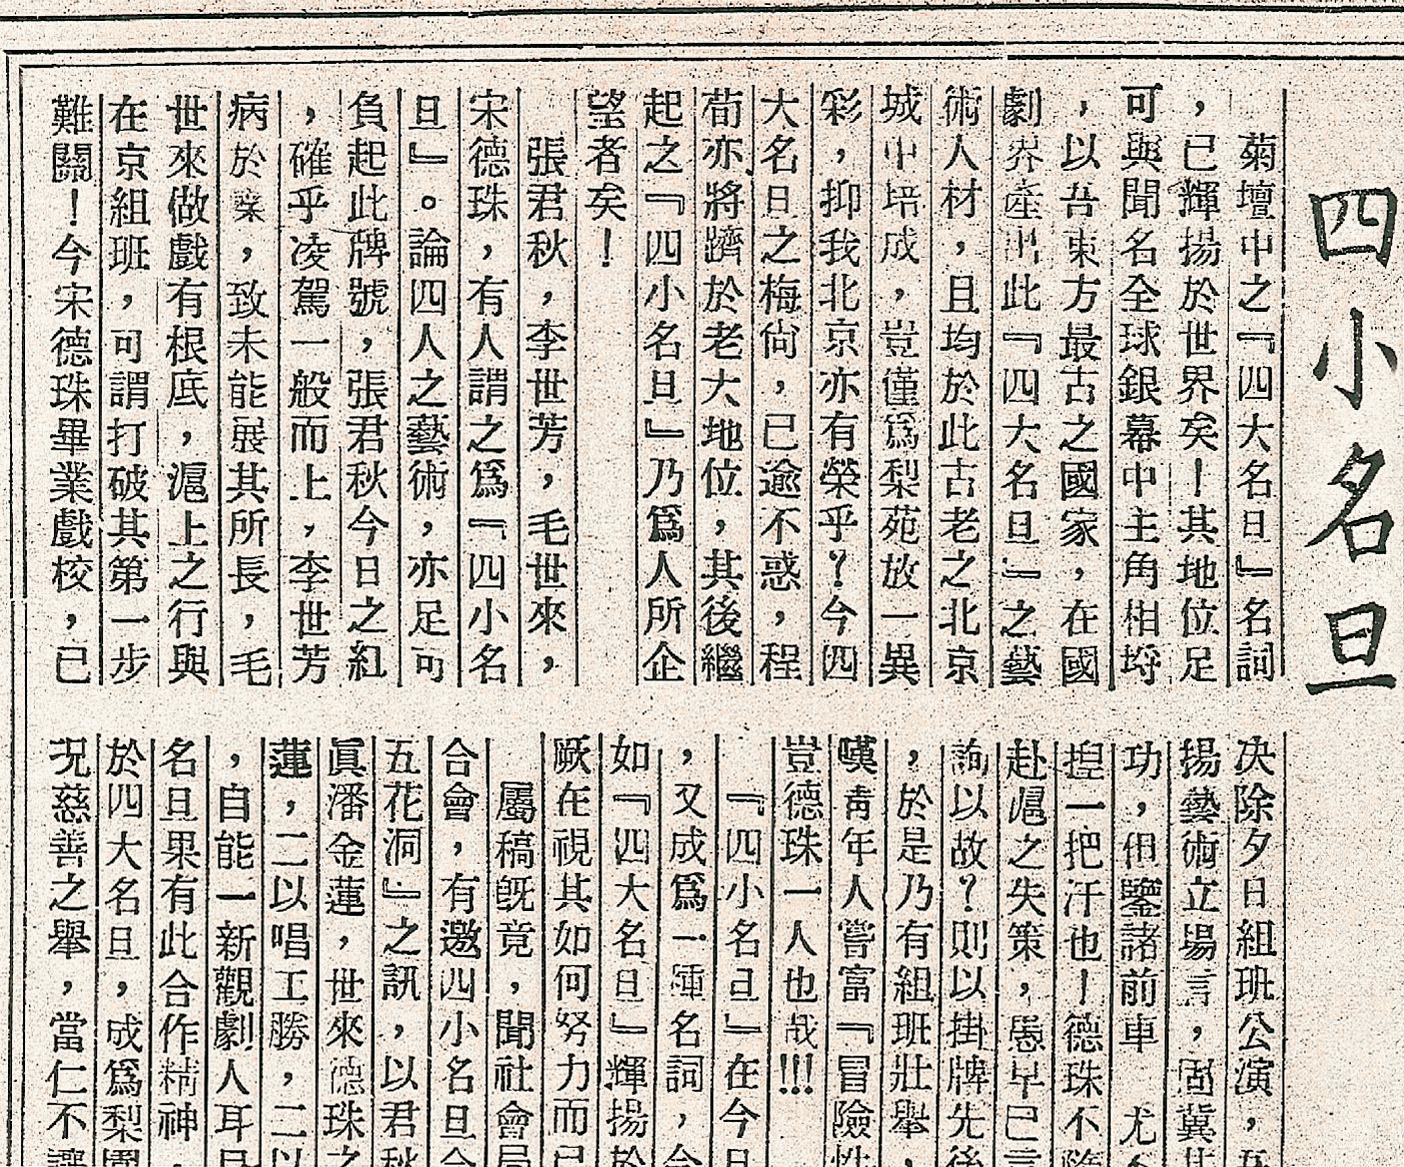 四小名旦
菊壇中之『四大名旦』名詞
，已輝揚於世界矣！其地位足
可與聞名全球銀幕中主角相埒
，以吾東方最古之國家，在國
劇界產出此『四大名旦』之藝
術人材，且均於此古老之北京
城中培成，豈僅爲梨苑放一異
彩，抑我北京亦有榮乎？今四
大名旦之梅尙，已逾不惑，程
荀亦將躋於老大地位，其後繼
起之『四小名旦』乃爲人所企
望者矣！
張君秋，李世芳，毛世來，
宋德珠，有人謂之爲『四小名
旦』。論四人之藝術，亦足可
負起此牌號，張君秋今日之紅
，確乎凌駕一般而上，李世芳
病於藥，致未能展其所長，毛
世來做戲有根底，滬上之行與
在京組班，可謂打破其第一步
難關！今宋德珠畢業戲校，已
决除夕日組班公演，
揚藝術立場言，固冀其
功，但鑒諸前車　尤不
揑一把汗也！德珠不
赴滬之失策，愚早已言
詢以故？則以掛牌先後
，於是乃有組班壯舉，
嘆靑年人嘗富『冒險性
豈德珠一人也哉!!!
『四小名旦』在今日
，又成爲一種名詞，今
如『四大名旦』輝揚於
厥在視其如何努力而已
屬稿旣竟，聞社會局
合會，有邀四小名旦合
五花洞』之訊，以君秋
眞潘金蓮，世來德珠之
蓮，二以唱工勝，二以
，自能一新觀劇人耳目
名旦果有此合作精神，
於四大名旦，成爲梨園
况慈善之舉，當仁不讓